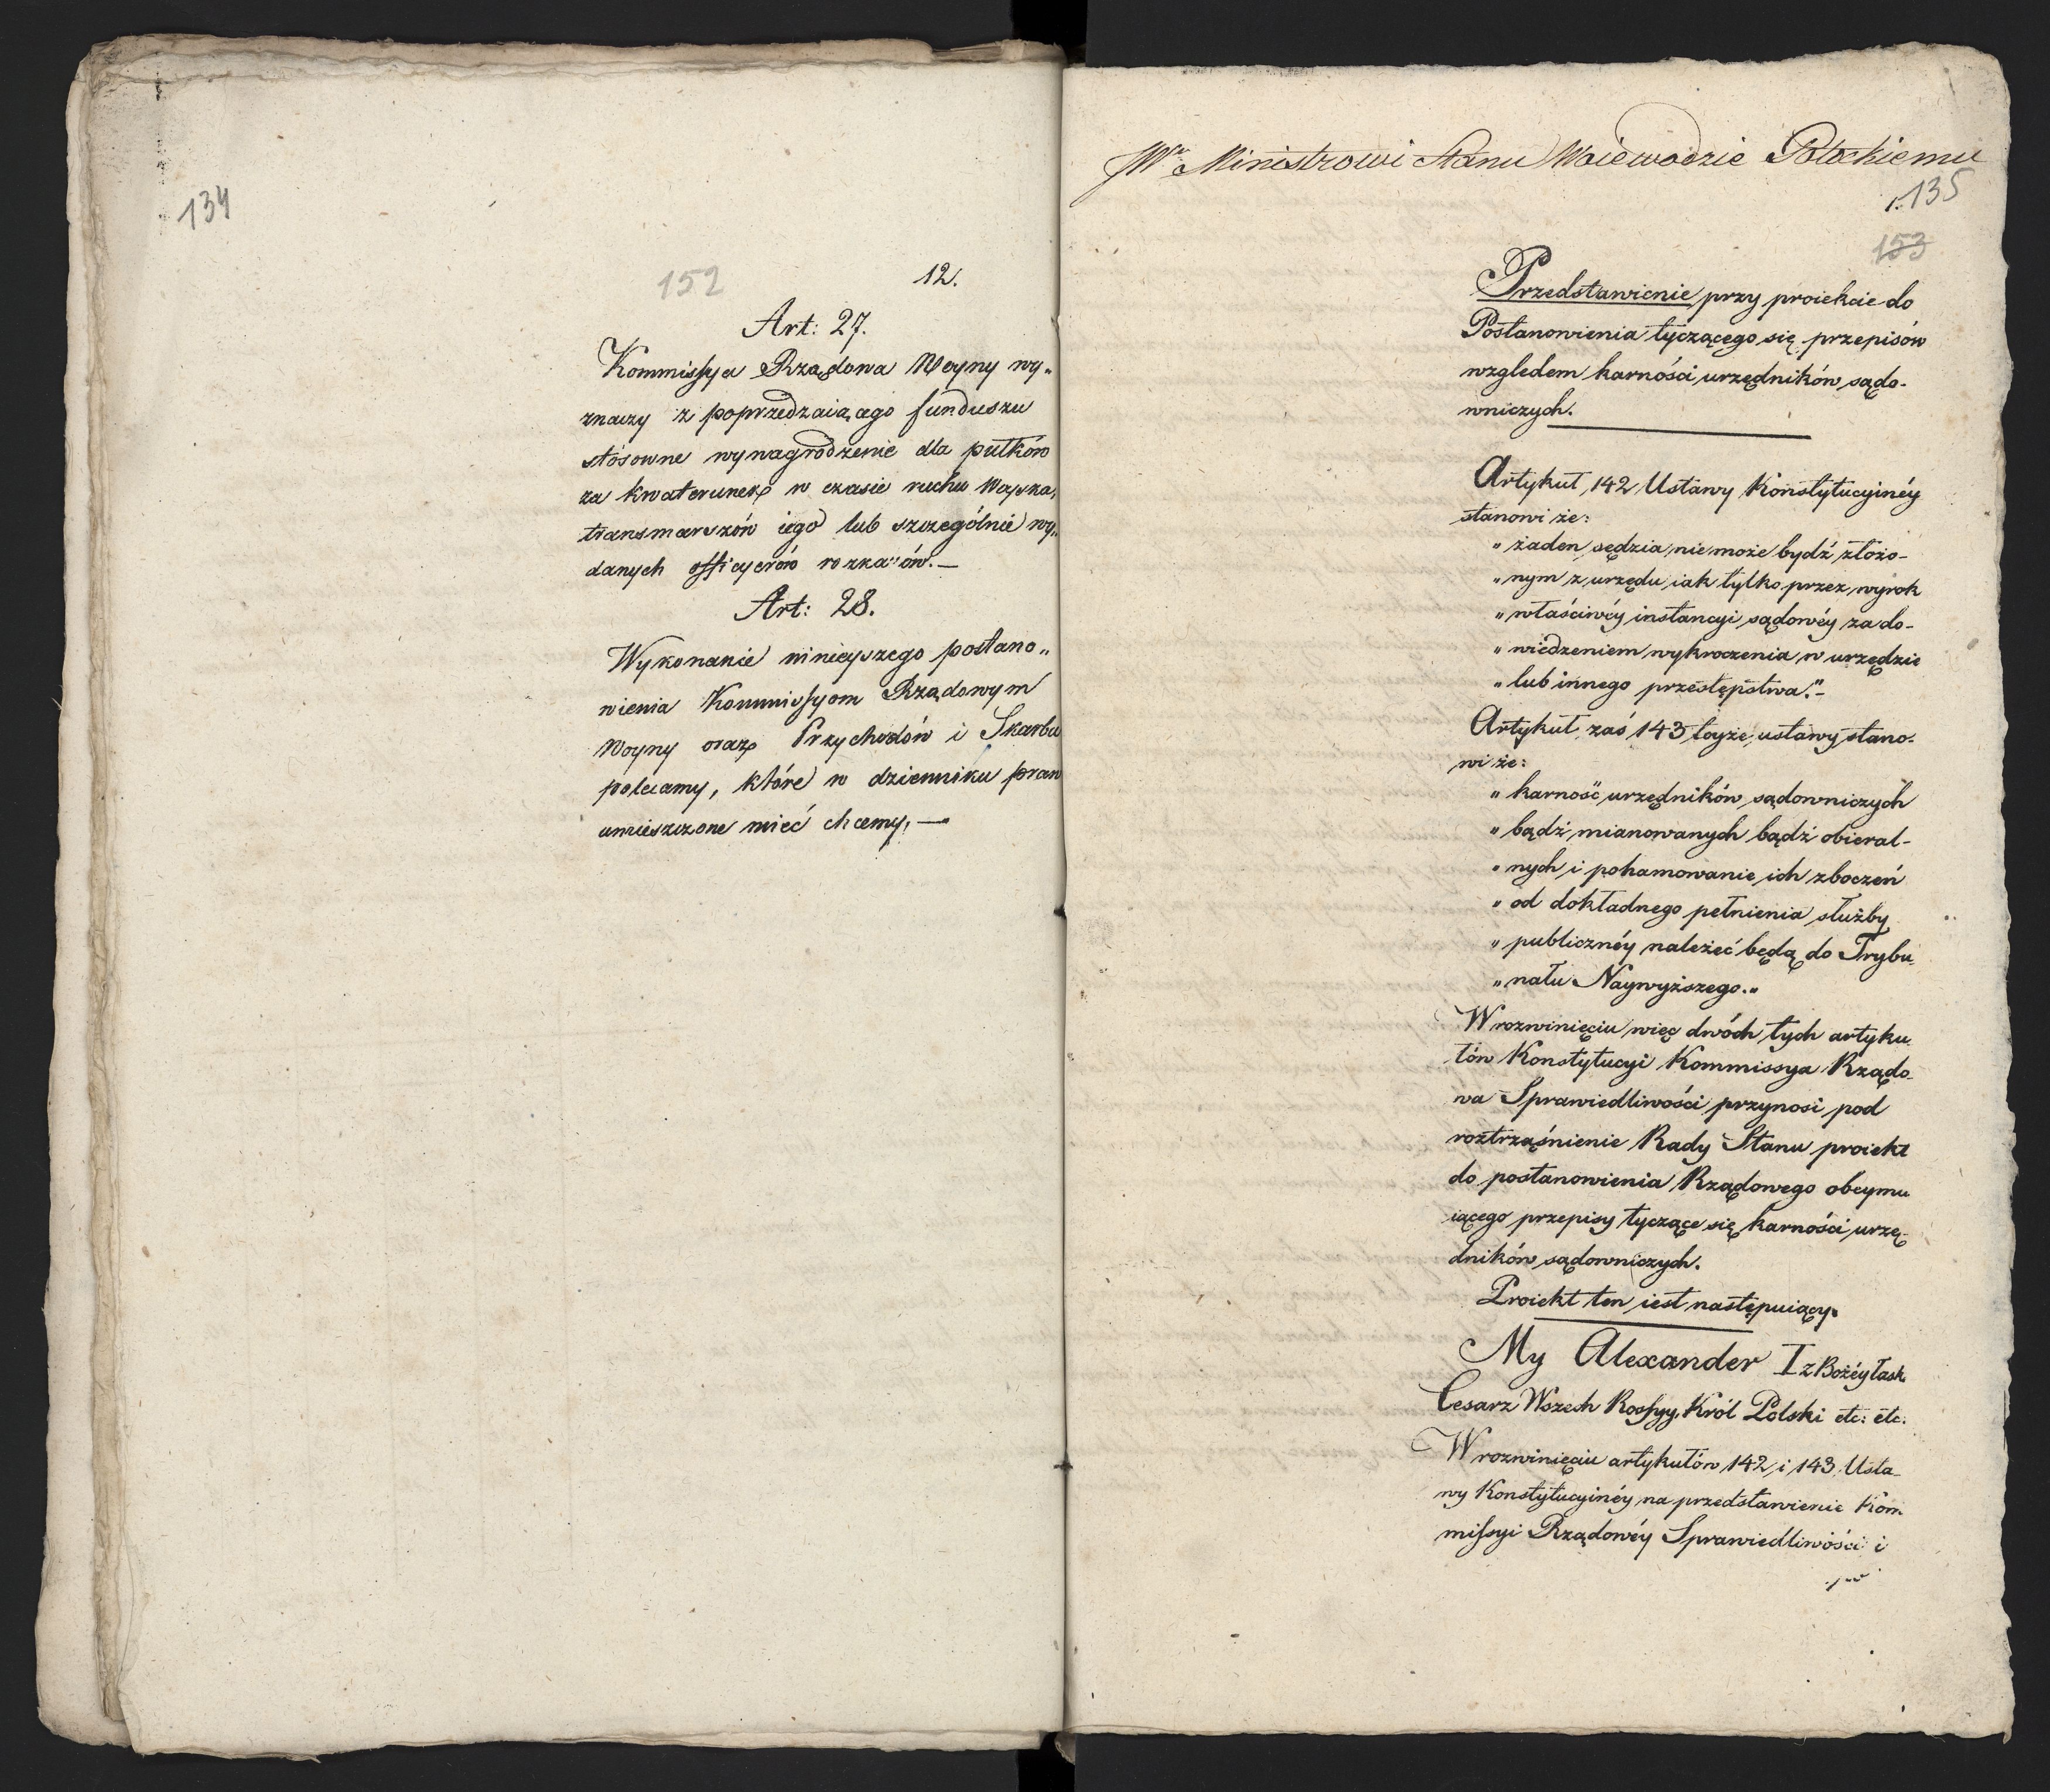 134
152
12.
Art: 27.
Kommissya Rządowa Woyny wy„
znaczy z poprzedzaiącego funduszu
stósowne wynagrodzenie dla pułków
za kwaterunek w czasie ruchu Woyska,
transmarszów iego lub szczególnie wy„
danych officyerów rozkazów.—
Art: 28.
Wykonanie ninieyszego postano„
wienia Kommissyom Rządowym
Woyny oraz Przychodów i Skarbu
polecamy, które w dzienniku praw
umieszczone mieć chcemy,—
JWu Ministrowi Stanu Woiewodzie Potockiemu
1. 135
153
Przedstawienie przy proiekcie do
Postanowienia tyczącego się przepisów
względem karności urzędników sądo-
wniczych.
Artykuł 142 Ustawy Konstytucyinéy
stanowi że:
„ żaden sędzia nie może bydź złożo-
„ nym z urzędu iak tylko przez wyrok
„ właściwéy instancyi sądowéy za do-
„ wiedzeniem wykroczenia w urzędzie
„ lub innego przestępstwa."-
Artykuł zaś 143 teyże ustawy stano-
wi że:
„ karność urzędników sądowniczych
„ bądź mianowanych bądź obieral-
„ nych i pohamowanie ich zboczeń
„ od dokładnego pełnienia służby
„ publicznéy należeć będą do Trybu-
„ nału Naywyższego."
W rozwinięciu więc dwóch tych artyku-
łów Konstytucyi Kommissya Rządo-
wa Sprawiedliwości przynosi pod
roztrząśnienie Rady Stanu proiekt
do postanowienia Rządowego obeymu
iącego przepisy tyczące się karności urzę-
dników sądowniczych.
Proiekt ten iest następuiący.
My Alexander I z Bożéy łask
Cesarz Wszech Rossyy, Król Polski etc: etc:
W rozwinięciu artykułów 142 i 143 Usta-
wy Konstytucyinéy na przedstawienie Kom
missyi Rządowéy Sprawiedliwości i